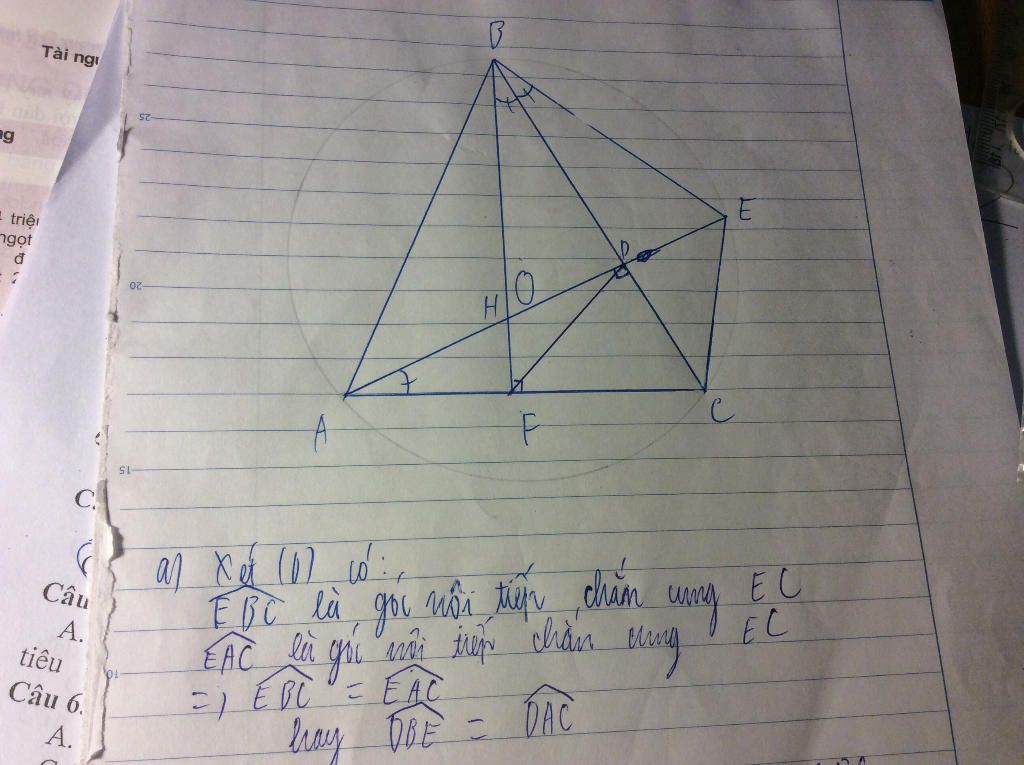 Tài ngu
ng
triệu
ngọt
đ
B
25
E
D
20
H
O
A
F
C
15
a) Xét (O) có:
EBC là góc nội tiếp, chắn cung EC
EAC là góc nội tiếp chắn cung EC
=> EBC = EAC
hay DBE = DAC
10
C
Câu
A.
tiêu
Câu 6.
A.